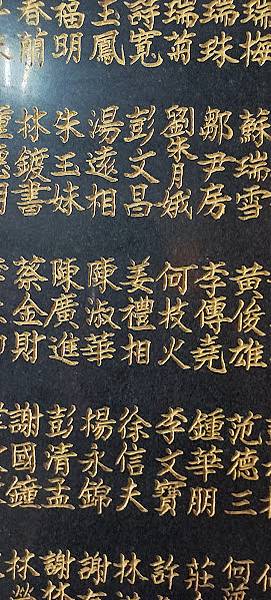 瑞梅
瑞珠
瑞菊
詩寬
玉鳳
福明
春蘭
蘇瑞雪
鄒尹房
劉朱月娥
彭文昌
湯遠相
朱玉妹
林鍍書
黃俊雄
李傳堯
何技火
姜禮相
陳淑華
陳廣進
蔡金財
范德三
鍾華朋
李文寶
徐信夫
楊永錦
彭清孟
謝國鐘
何
莊
許
林
謝
謝林
林榮